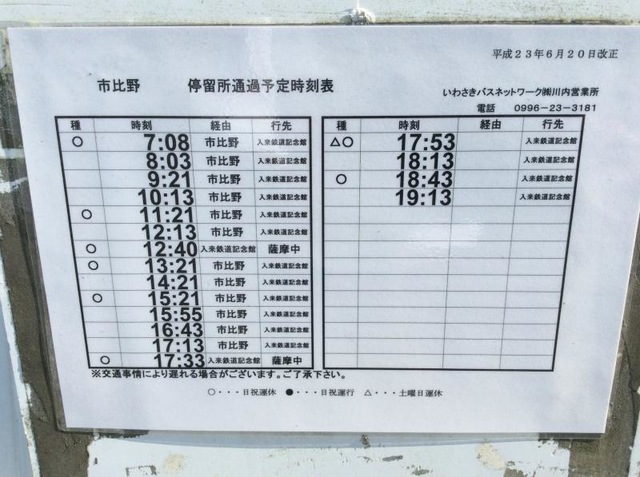 平成23年6月20日改正
市比野 停留所通過予定時刻表
いわさきバスネットワーク㈱川内営業所
電話 0996-23-3181
種 時刻 経由 行先
○ 7:08 市比野 入来鉄道記念館
8:03 市比野 入来鉄道記念館
9:21 市比野 入来鉄道記念館
10:13 市比野 入来鉄道記念館
○ 11:21 市比野 入来鉄道記念館
12:13 市比野 入来鉄道記念館
○ 12:40 入来鉄道記念館 薩摩中
○ 13:21 市比野 入来鉄道記念館
14:21 市比野 入来鉄道記念館
○ 15:21 市比野 入来鉄道記念館
15:55 市比野 入来鉄道記念館
16:43 市比野 入来鉄道記念館
17:13 市比野 入来鉄道記念館
○ 17:33 入来鉄道記念館 薩摩中
種 時刻 経由 行先
△○ 17:53 入来鉄道記念館
18:13 入来鉄道記念館
○ 18:43 入来鉄道記念館
19:13 入来鉄道記念館
※交通事情により遅れる場合がございます。ご了承下さい。
○・・・日祝運休 ●・・・日祝運行 △・・・土曜日運休